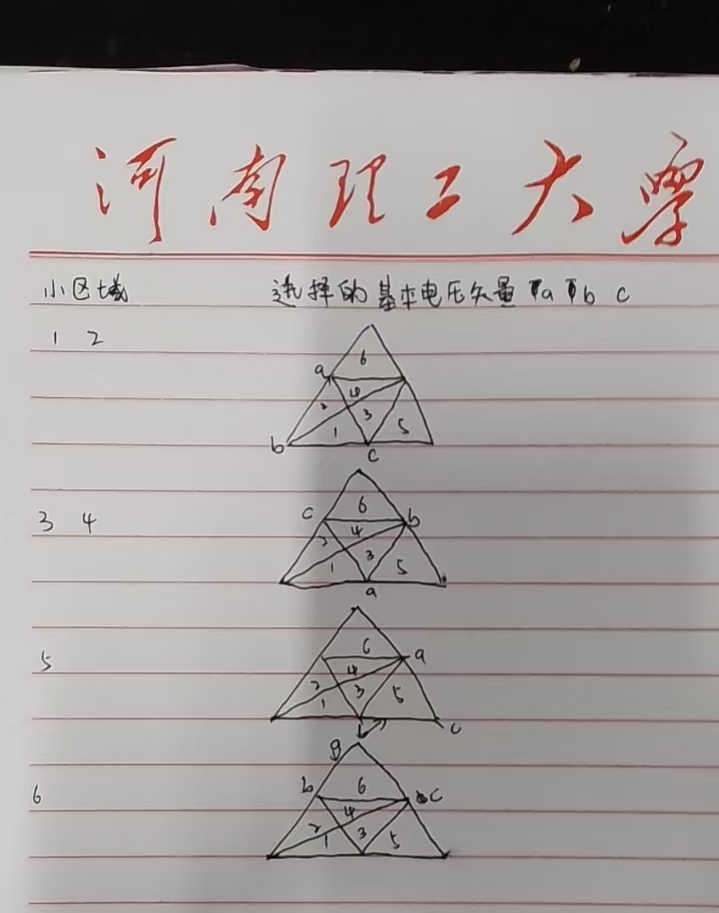 河南理工大學
小区域 选择的基本电压矢量 a b c
1 2
6
a
2 4 3
1 5
b c
3 4
6
c b
2 4 3
1 5
a
5
6
a
2 4 3
1 5
c
6
a
b 6 c
4
2 1 3 5